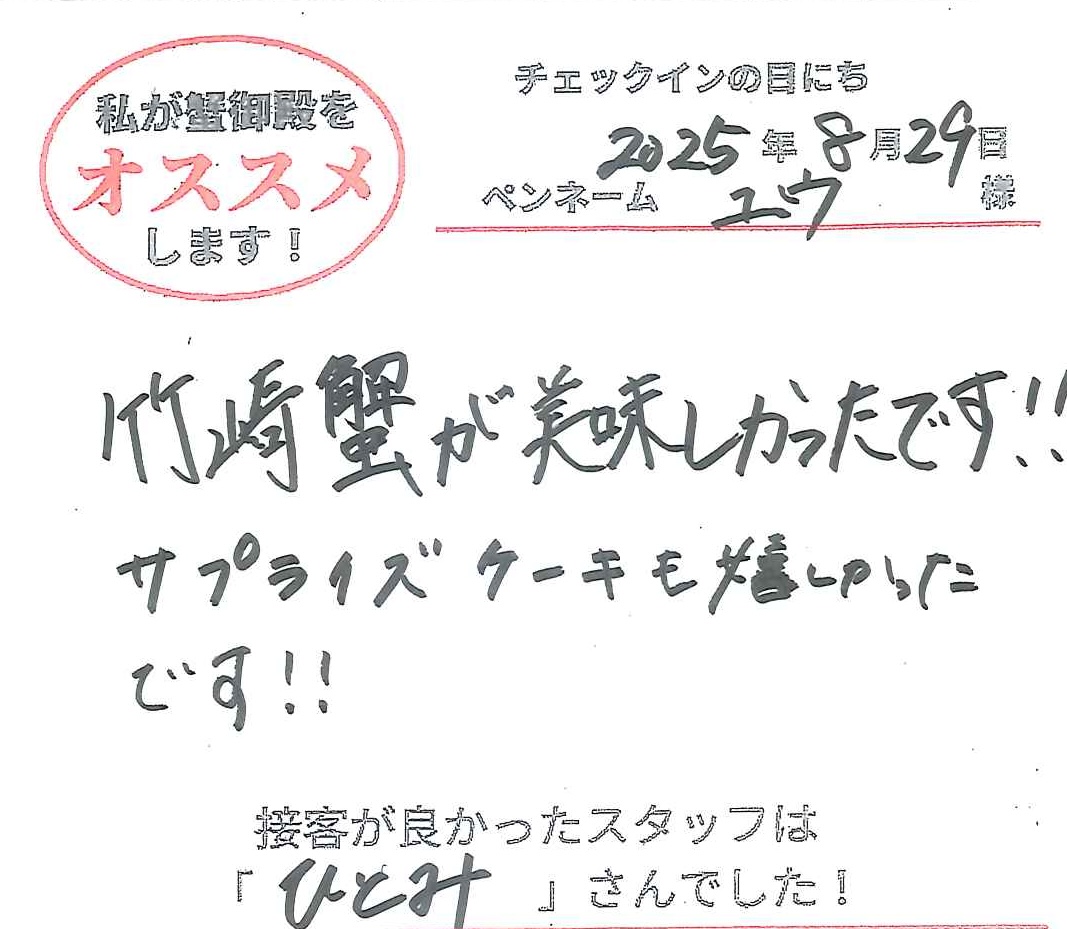 私が蟹御殿を
オススメ
します！
チェックインの日にち
2025年8月29日
ペンネーム ユウ 様
竹崎蟹が美味しかったです!!
サプライズケーキも嬉しかった
です!!
接客が良かったスタッフは
「ひとみ」さんでした！